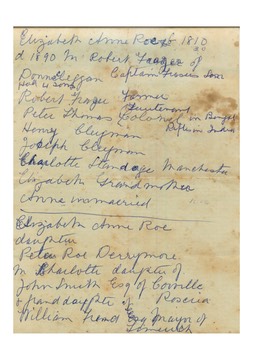 Elizabeth Anne Roe b 1810
d 1890 M. Robert Frazer of
Captain Frazers Son
Had 4 sons
Robert Frazer Farmer
Lieutenant
Peter Thomas Colonel in Bengal
Henry Clergman Rifles in India
Joseph Clergman
Charlotte Standage Manchester
Elizabeth Grandmother
Anne unmarried
Elizabeth Anne Roe
daughter
Peter Roe Derrymore
M Charlotte daughter of
John Smith Esq of
& granddaughter of Roscrea
William Esq Mayor of
Limerick